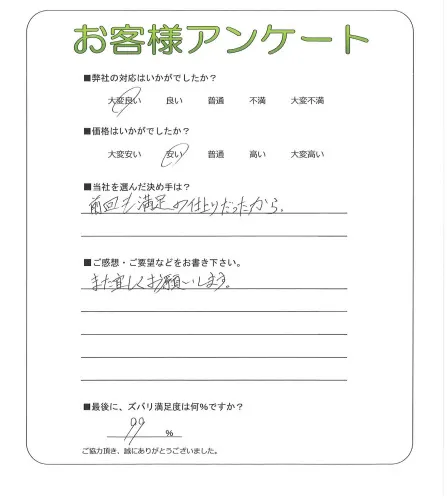 お客様アンケート
■弊社の対応はいかがでしたか？
大変良い 良い 普通 不満 大変不満
■価格はいかがでしたか？
大変安い 安い 普通 高い 大変高い
■当社を選んだ決め手は？
前回も満足の仕上りだったから。
■ご感想・ご要望などをお書き下さい。
また宜しくお願いします。
■最後に、ズバリ満足度は何%ですか？
99 %
ご協力頂き、誠にありがとうございました。